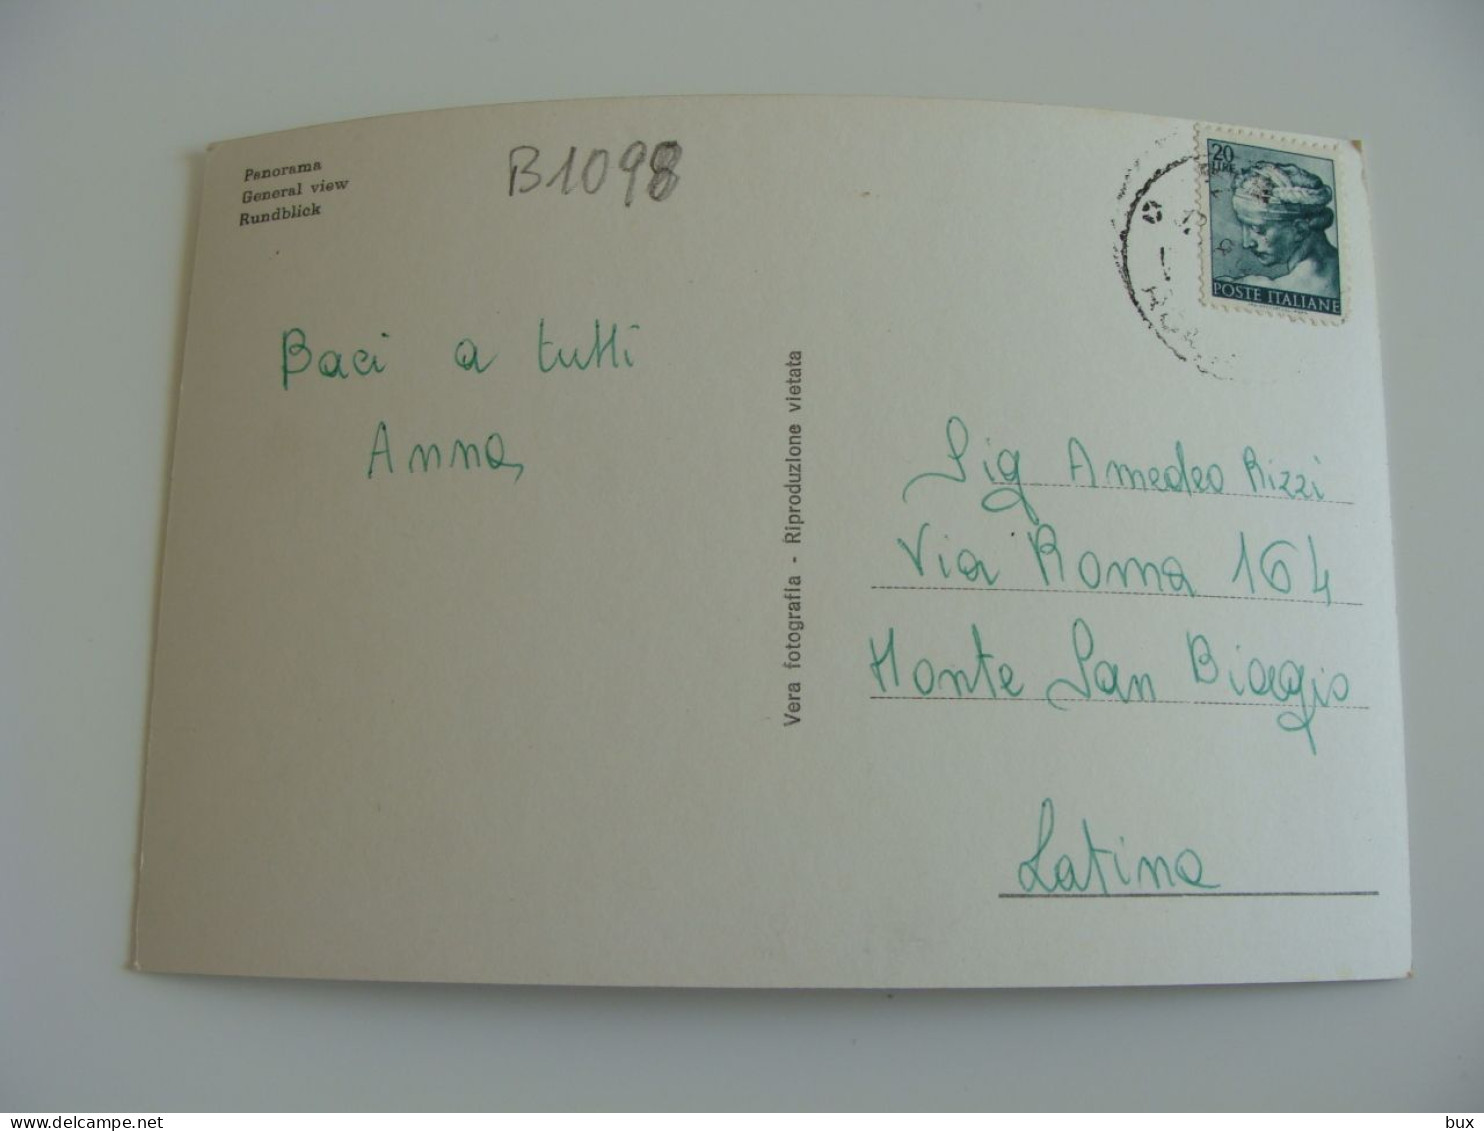 Panorama
General view
Rundblick
B1098
20
LIRE
POSTE ITALIANE
Baci a tutti
Anna
Vera fotografia - Riproduzione vietata
Sig Amedeo Rizzi
Via Roma 164
Monte San Biagio
Latina
bux